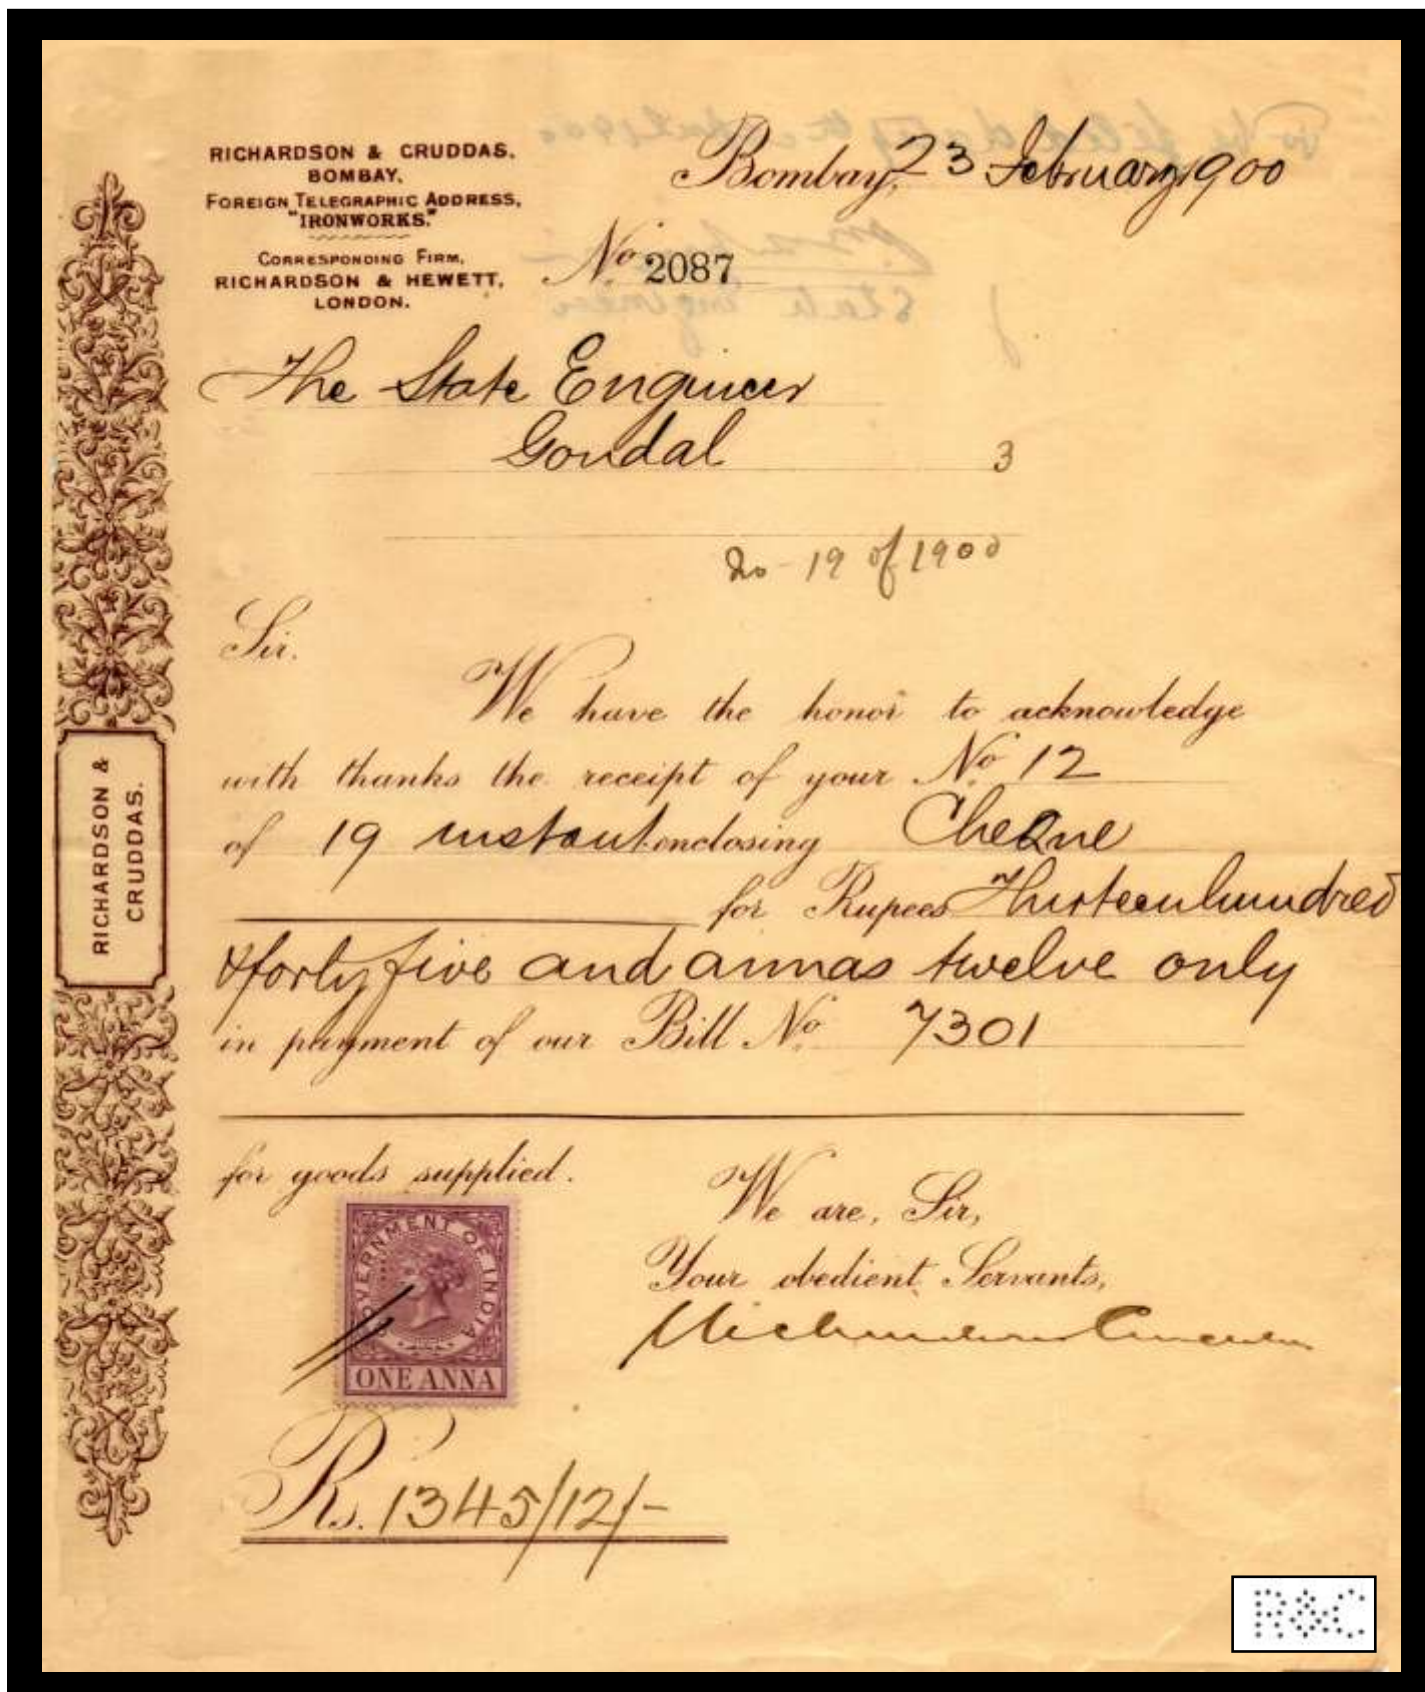 RICHARDSON & CRUDDAS.
BOMBAY.
FOREIGN TELEGRAPHIC ADDRESS,
"IRONWORKS."
CORRESPONDING FIRM,
RICHARDSON & HEWETT,
LONDON.
Bombay, 23 February 1900
No 2087
State Engineer
The State Engineer
Gondal
3
No - 19 of 1900
Sir.
We have the honor to acknowledge
with thanks the receipt of your No 12
of 19 instant enclosing Cheque
for Rupees Thirteen hundred
& forty five and annas twelve only
in payment of our Bill No 7301
for goods supplied.
We are, Sir,
Your obedient Servants,
RICHARDSON &
CRUDDAS.
GOVERNMENT OF INDIA
ONE ANNA
Rs. 1345/12/-
R&C